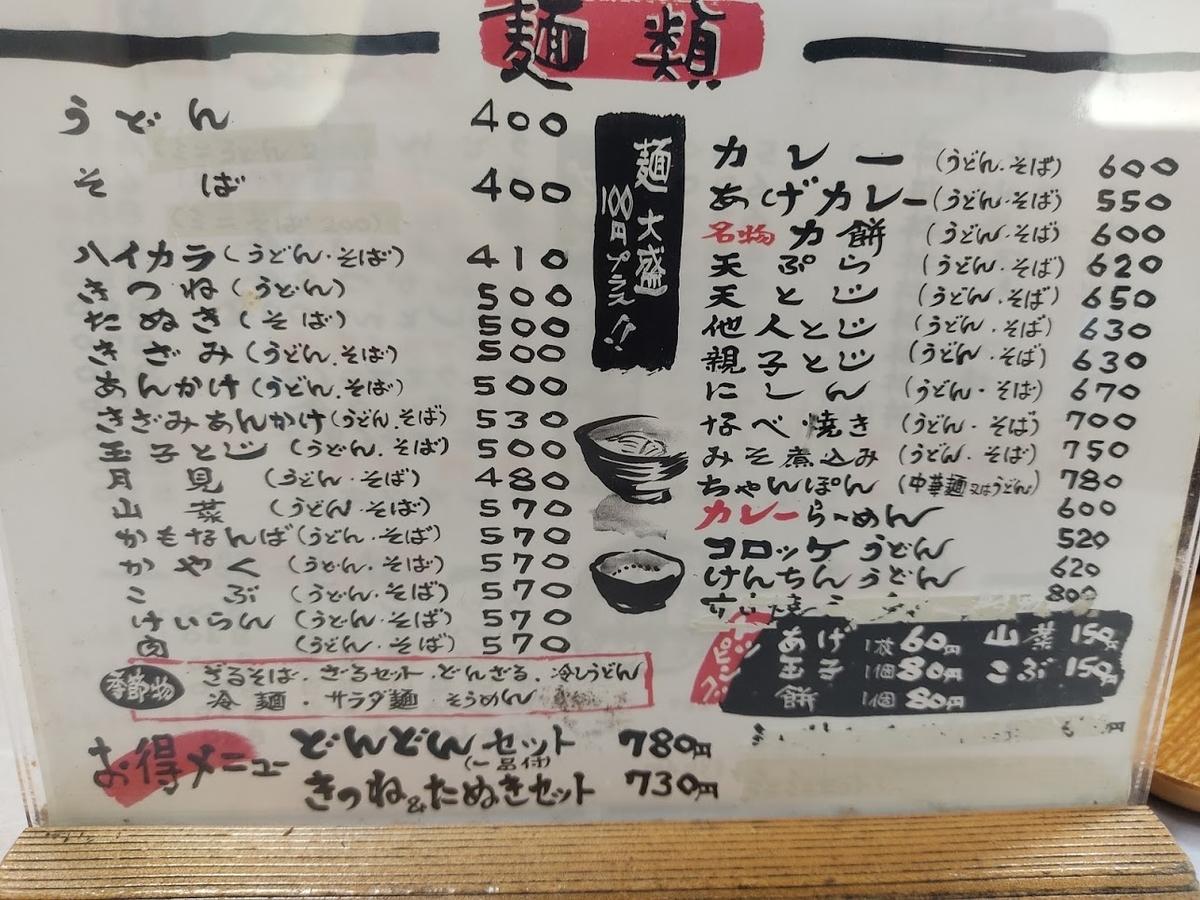 麺類
うどん 400
そば 400
ハイカラ(うどん・そば) 410
きつね(うどん) 500
たぬき(そば) 500
きざみ(うどん.そば) 500
あんかけ(うどん.そば) 500
きざみあんかけ(うどん.そば) 530
玉子とじ(うどん.そば) 500
月見(うどん・そば) 480
山菜(うどん・そば) 570
かもなんば(うどん・そば) 570
かやく(うどん・そば) 570
こぶ(うどん・そば) 570
けいらん(うどん・そば) 570
肉(うどん・そば) 570
季節物
ざるそば・ざるセット・どんざる・冷しうどん
冷麺・サラダ麺 そうめん
お得メニュー
どんどんセット 780円
(一品付)
きつね&たぬきセット 730円
麺大盛
100円プラス!!
カレー(うどん.そば) 600
あげカレー(うどん・そば) 550
名物力餅(うどん・そば) 600
天ぷら(うどん・そば) 620
天とじ(うどん.そば) 650
他人とじ(うどん・そば) 630
親子とじ(うどん・そば) 630
にしん(うどん・そば) 670
なべ焼き(うどん・そば) 700
みそ煮込み(うどん・そば) 750
ちゃんぽん(中華麺又はうどん) 780
カレーらーめん 600
コロッケうどん 520
けんちんうどん 620
800
トッピング
あげ 1枚60円 山菜150円
玉子 1個80円 こぶ150円
餅 1個80円